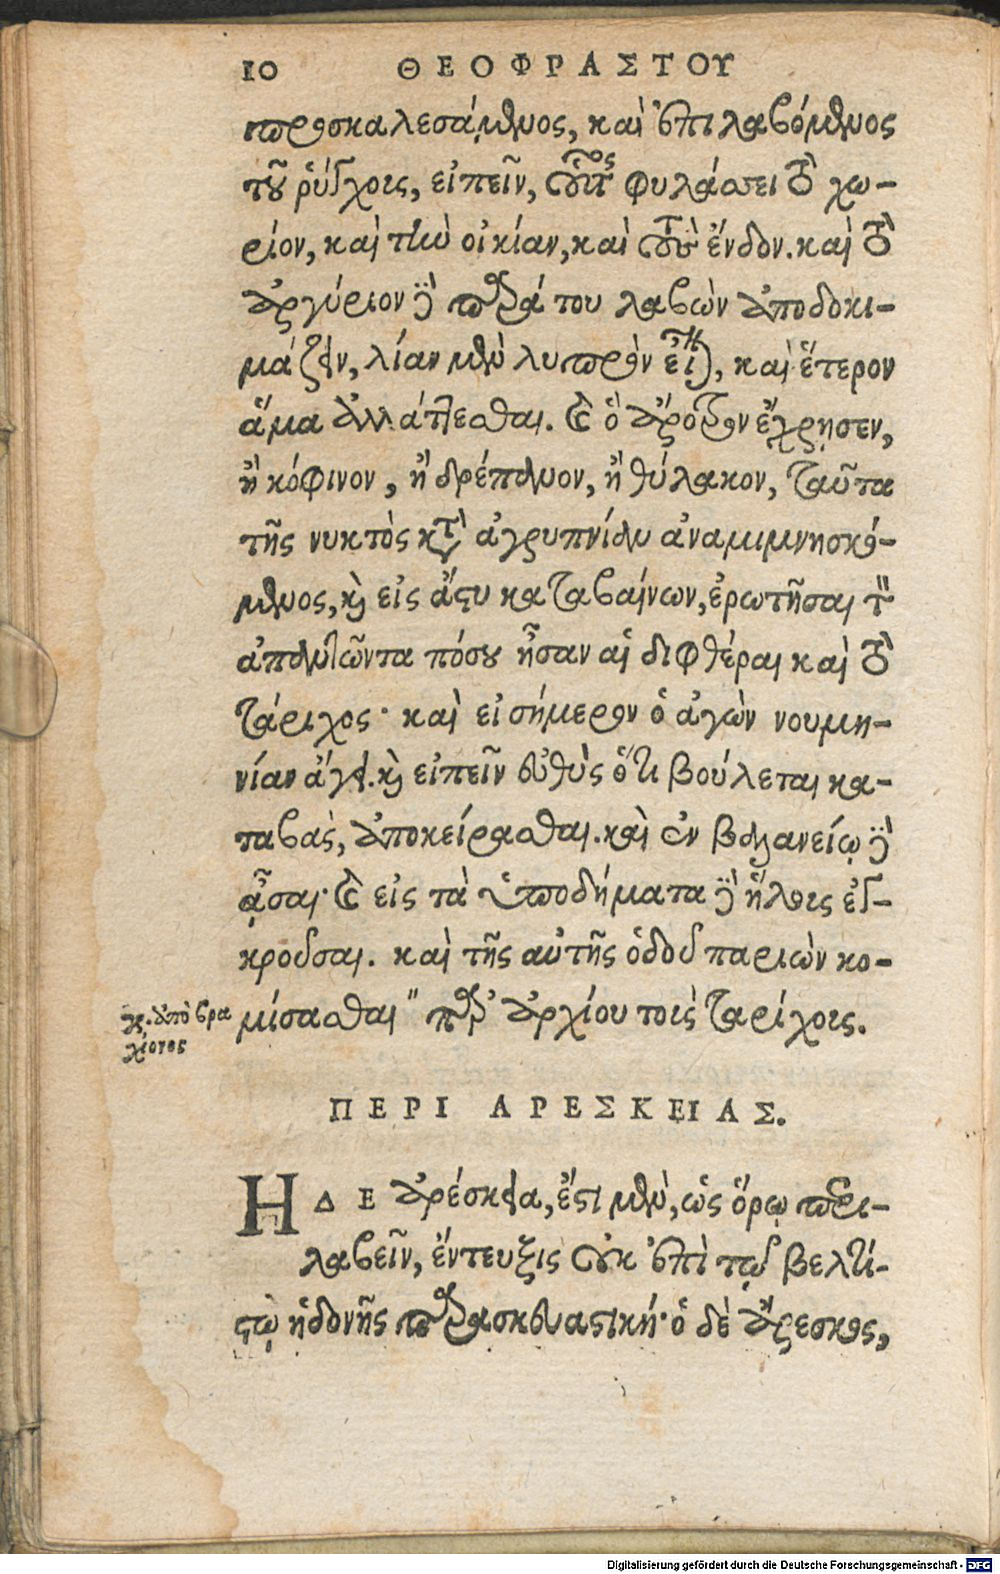 10 ΘΕΟΦΡΑΣΤΟΥ
προσκαλεσάμενος, καὶ ἐπιλαβόμενος
τοῦ ῥύγχους, εἰπεῖν, οὗτος φυλάσσει τὸ χω-
ρίον, καὶ τὴν οἰκίαν, καὶ τοὺς ἔνδον. καὶ τὸ
ἀργύριον δὲ παρά του λαβὼν ἀποδοκι-
μάζειν, λίαν μὲν λυπρὸν εἶναι, καὶ ἕτερον
ἅμα ἀλλάττεσθαι. καὶ ὃ ἄροτρον ἔχρησεν,
ἢ κόφινον, ἢ δρέπανον, ἢ θύλακον, ταῦτα
τῆς νυκτὸς κατὰ ἀγρυπνίαν ἀναμιμνησκό-
μενος, καὶ εἰς ἄστυ καταβαίνων, ἐρωτῆσαι τὸν
ἀπαντῶντα πόσου ἦσαν αἱ διφθέραι καὶ τὸ
τάριχος· καὶ εἰ σήμερον ὁ ἀγὼν νουμη-
νίαν ἄγει. καὶ εἰπεῖν εὐθὺς ὅτι βούλεται κα-
ταβὰς, ἀποκείρασθαι. καὶ ἐν βαλανείῳ δὲ
ᾆσαι· καὶ εἰς τὰ ὑποδήματα δὲ ἥλους ἐγ-
κροῦσαι. καὶ τῆς αὐτῆς ὁδοῦ παριὼν κο-
μίσασθαι" παρ' ἀρχίου τοὺς ταρίχους.
γρ. ἀπὸ βρα
χίονος
ΠΕΡΙ ΑΡΕΣΚΕΙΑΣ.
Η ΔΕ ἀρέσκεια, ἔστι μὲν, ὡς ὅρῳ περι-
λαβεῖν, ἔντευξις οὐκ ἐπὶ τῷ βελτί-
στῳ ἡδονῆς παρασκευαστική· ὁ δὲ ἄρεσκος,
Digitalisierung gefördert durch die Deutsche Forschungsgemeinschaft - DFG